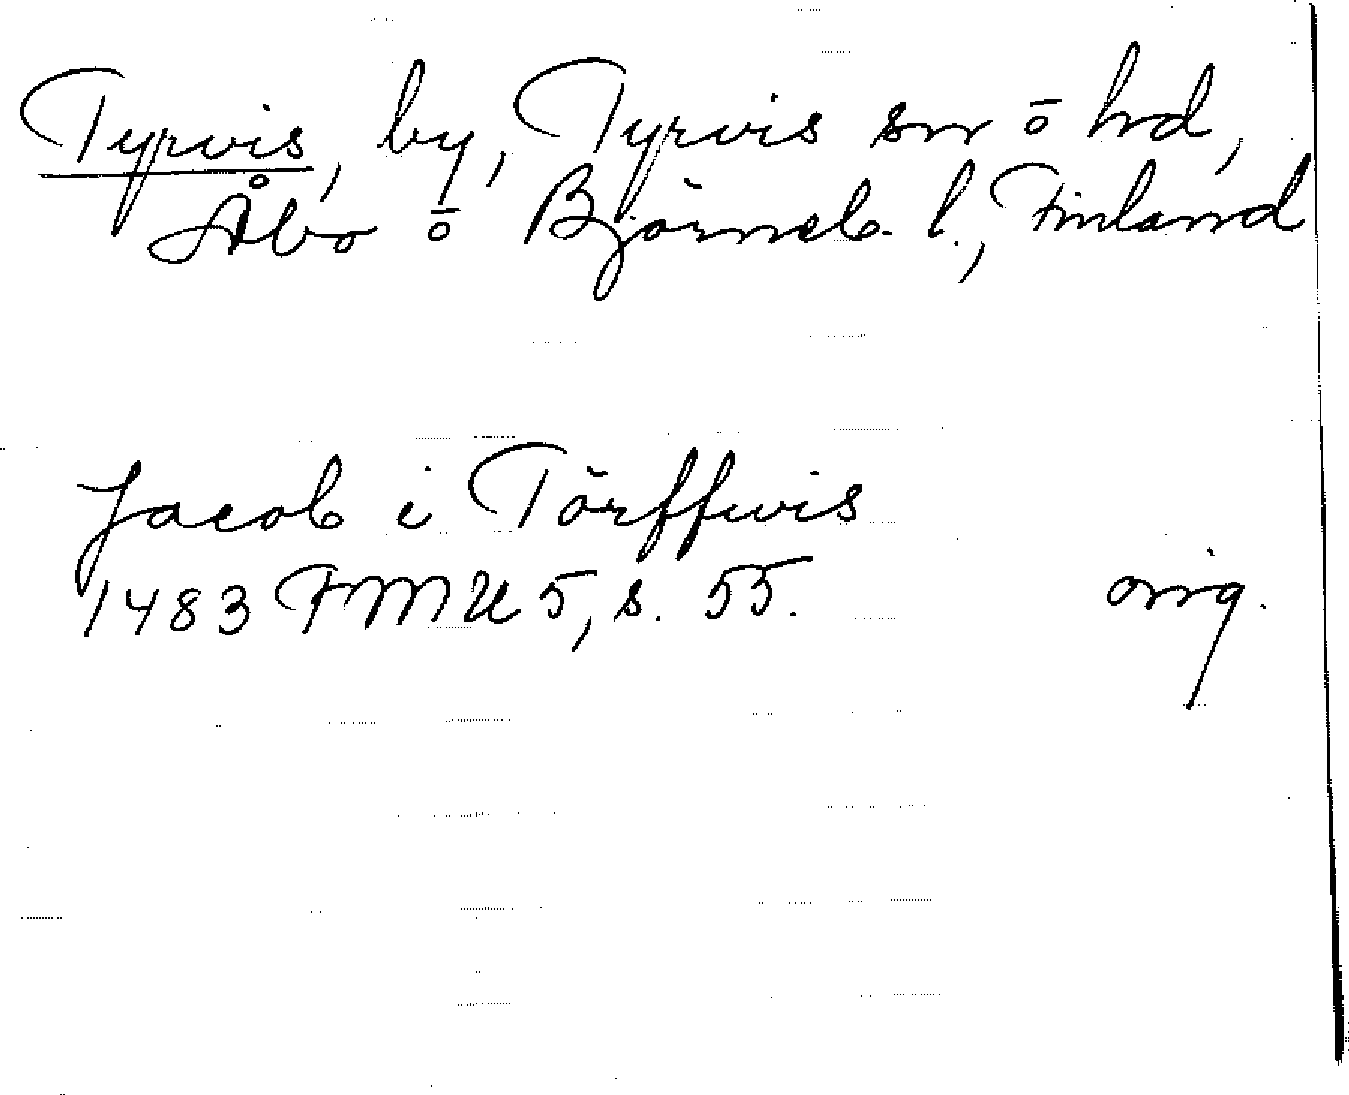 Tyrvis, by, Tyrvis sn ō hd,
Åbo ō Björneb. l., Finland
Jacob i Törffwis
1483 FMU 5, s. 55. orig.